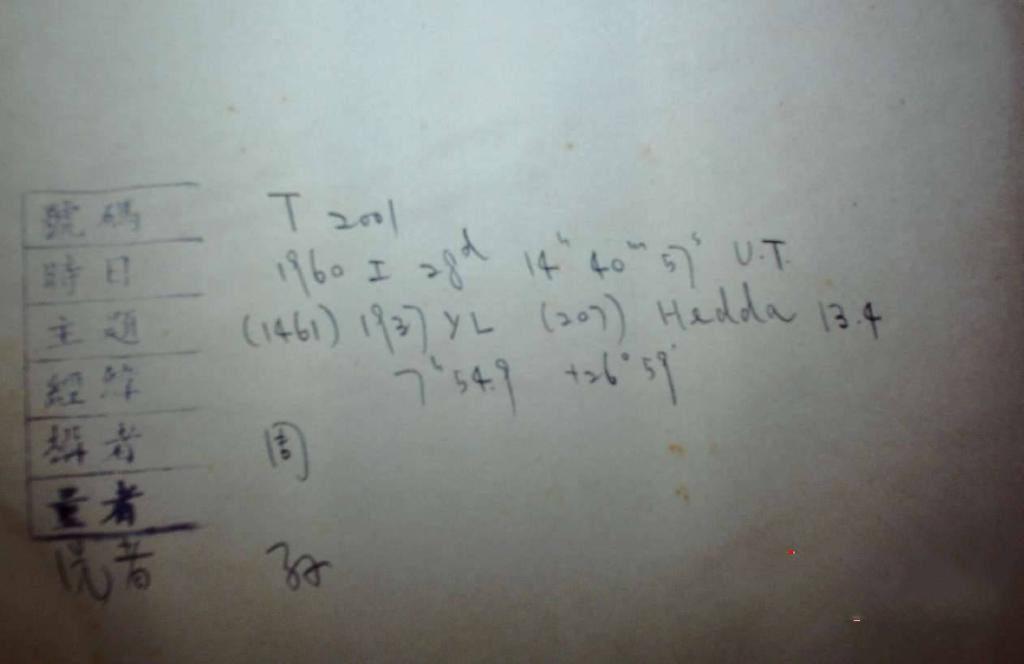 號碼 T 2001
時日 1960 I 28d 14h 40m 57s U.T.
主題 (1461) 1937 YL (207) Hedda 13.4
7h 54.9 +26° 59'
者 周
量者
者 孙